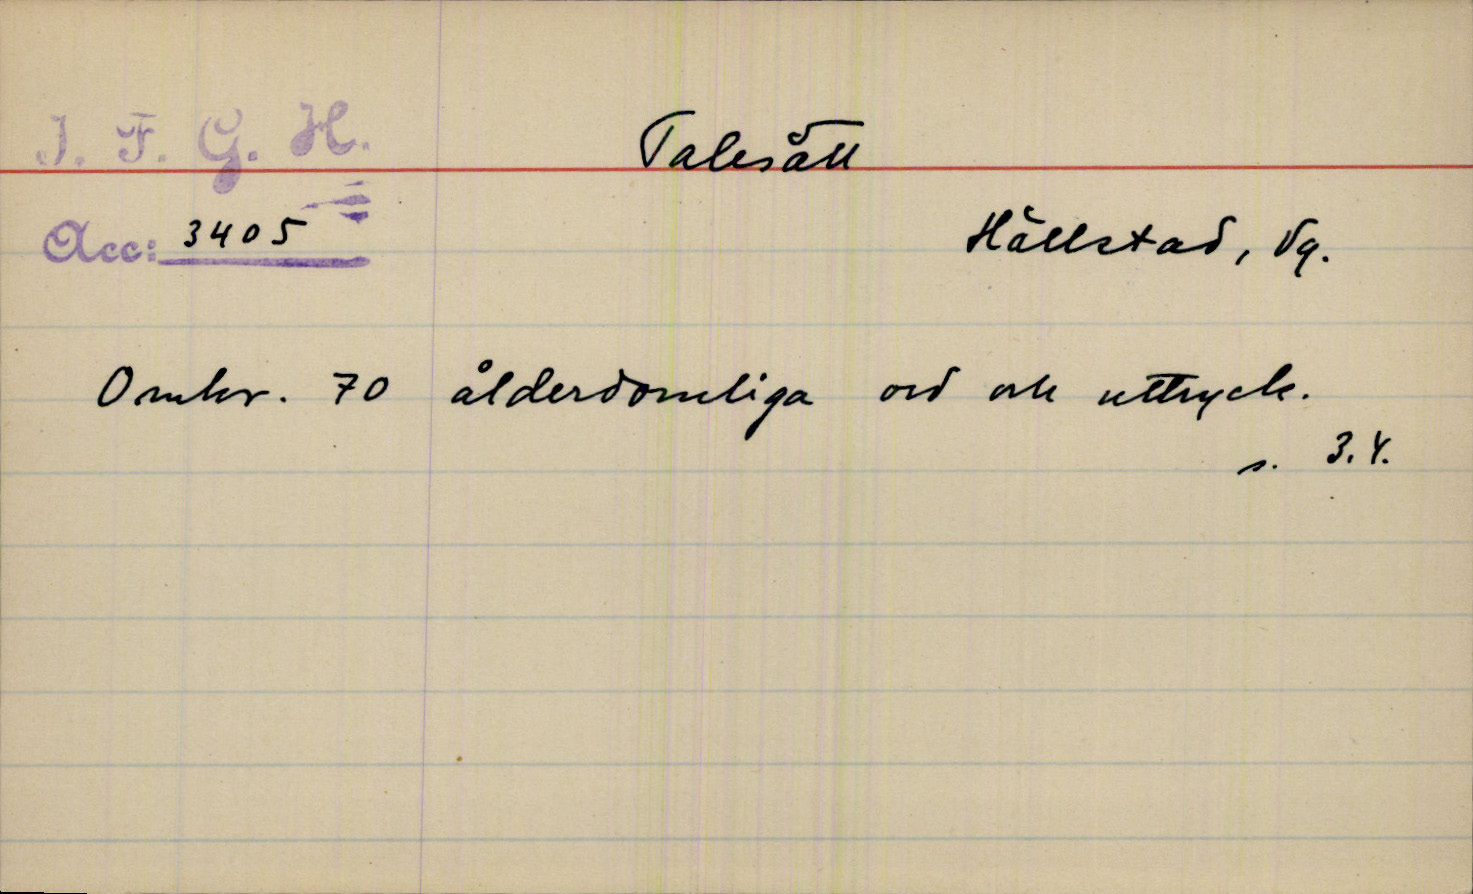 I. F. G. H.
Talesätt
Acc: 3405
Hällstad, Vg.
Omkr. 70 ålderdomliga ord och uttryck.
s. 3.4.